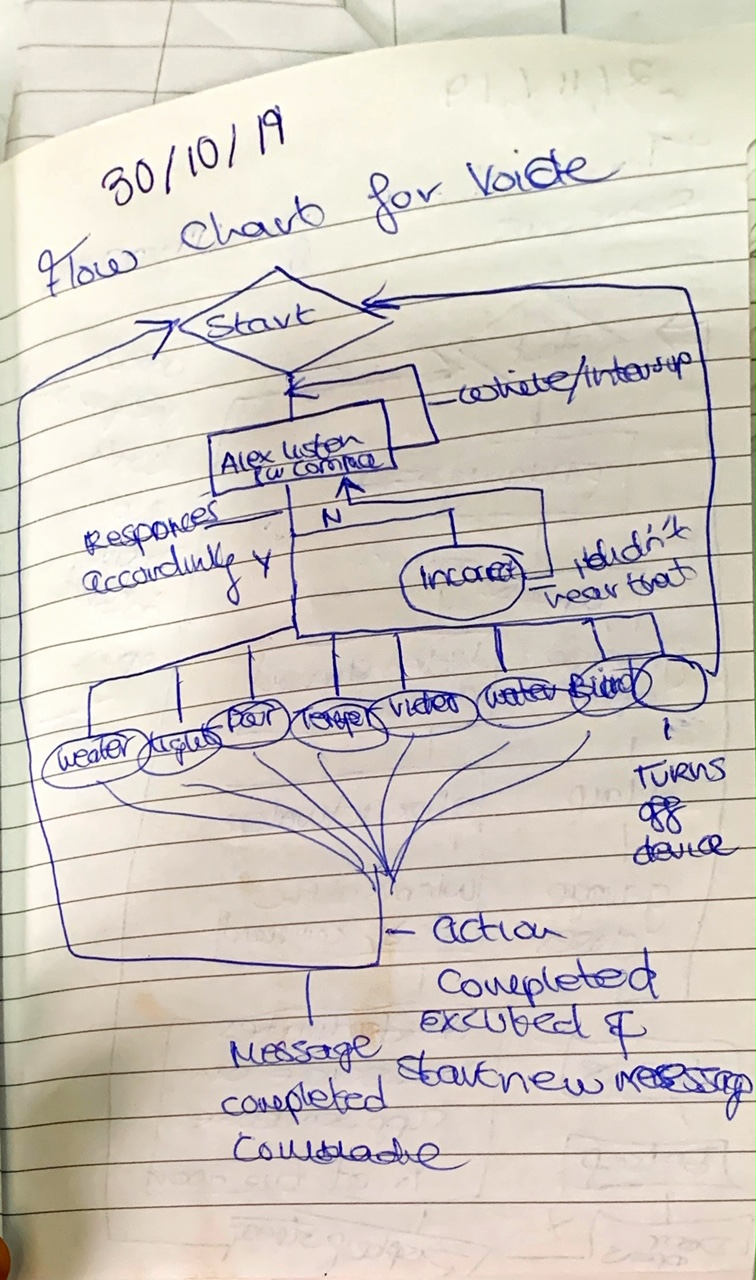 30/10/19
Flow Chart for Voice
Start
while/interrup
Alex listen
Responces
accordingly Y
N
Incorrect
I didn't
hear that
Weater
Lights
Door
Temper
Video
Water
Blind
Turns
off
device
Action
Completed
excuted &
Start new message
Message
completed